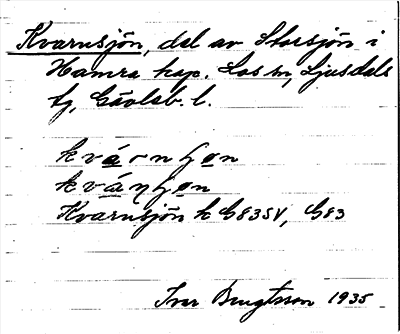 Kvarnsjön, del av Storsjön i
Hamra kap. Los sn, Ljusdals
tg, Gävleb. l.
kvárnʃøn
kváŋʃøn
Kvarnsjön k G83SV, G83
Ivar Bengtsson 1935